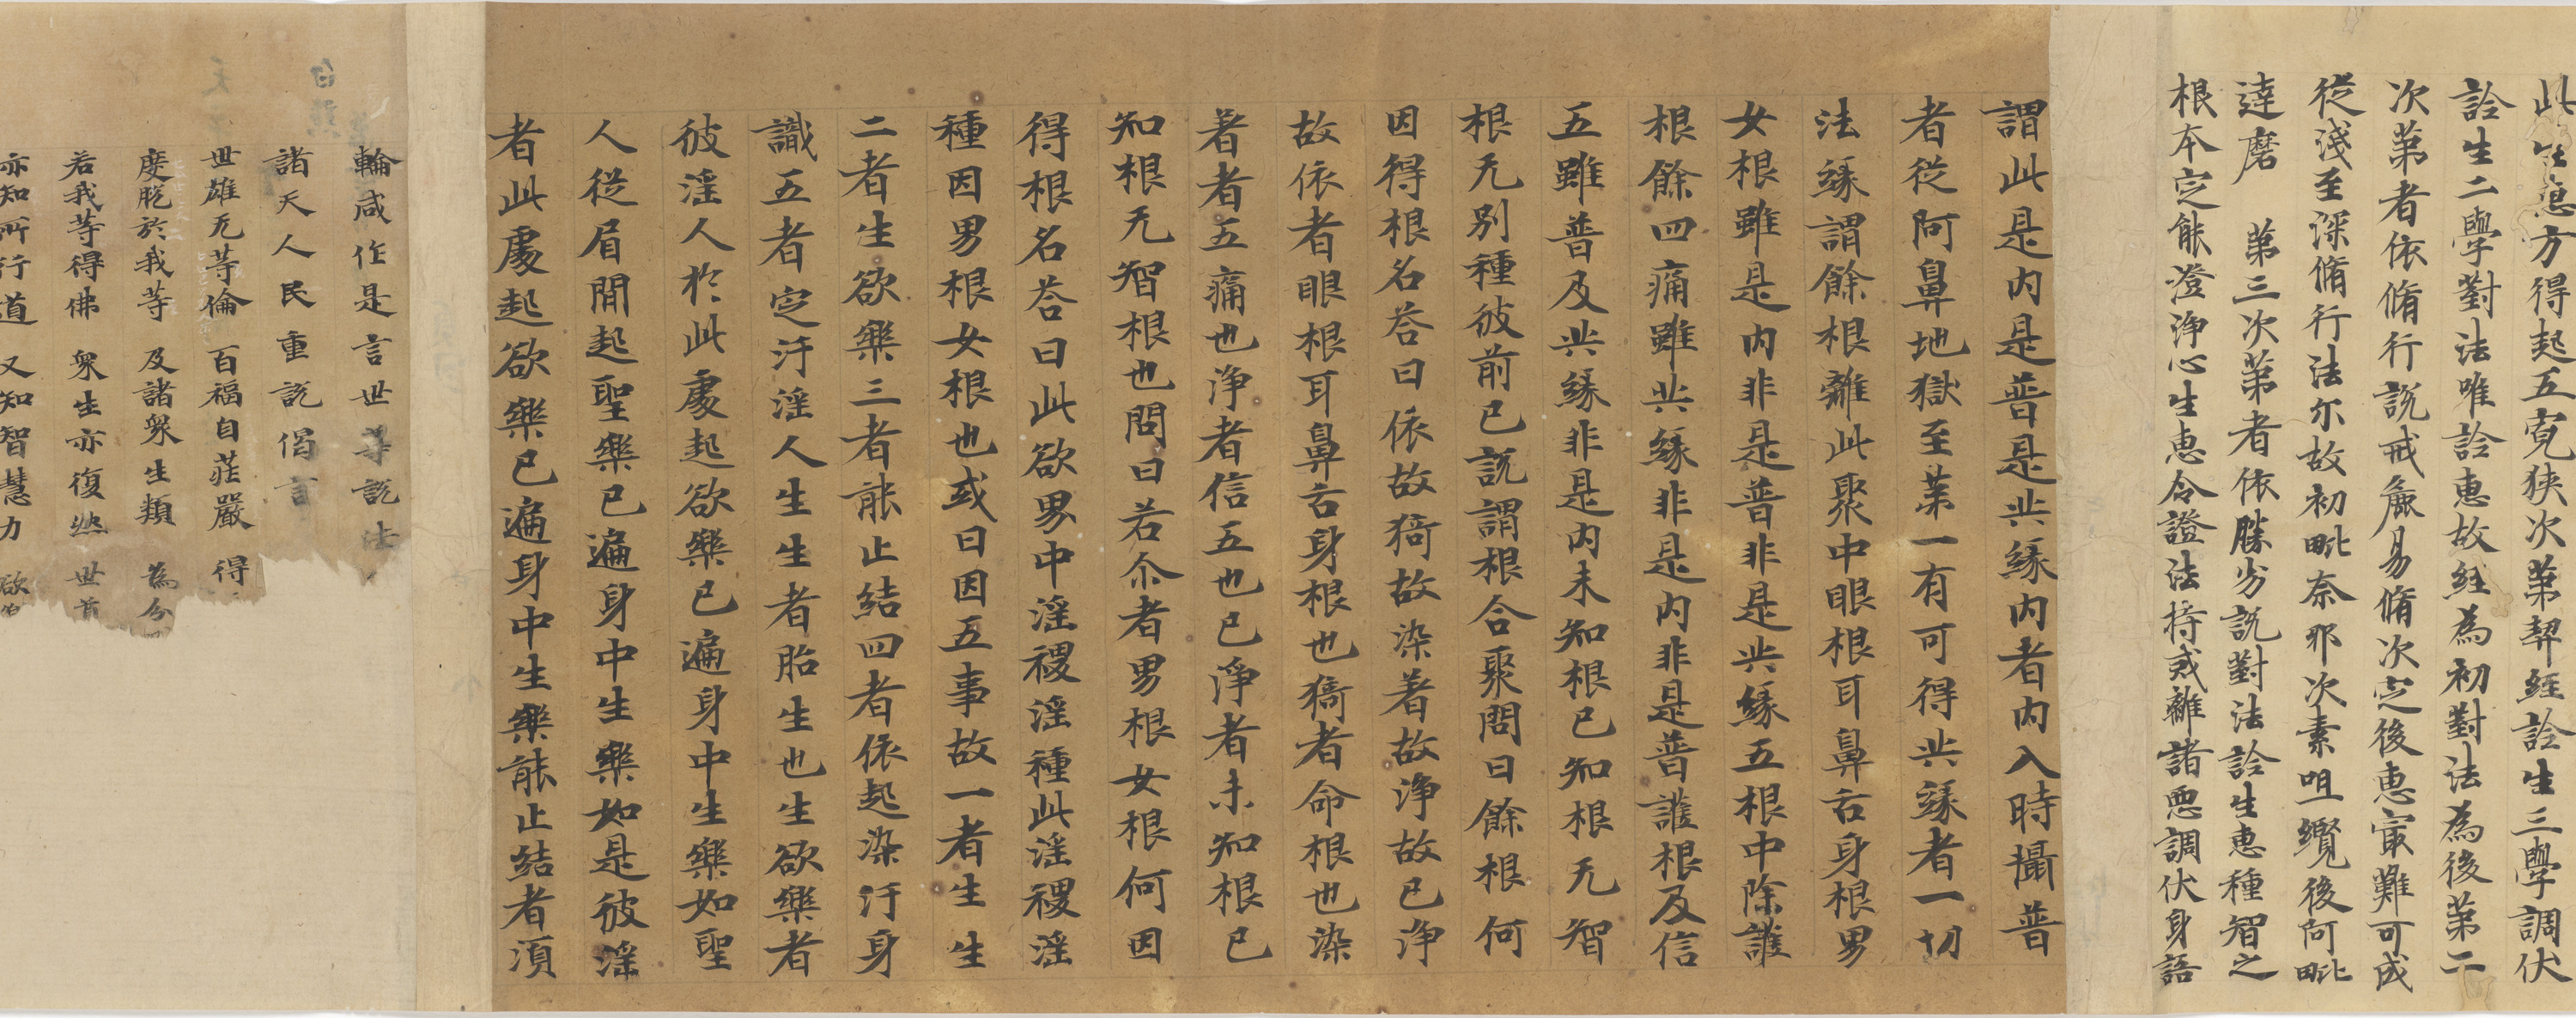 此生慧方得起五寛狹次第契経詮生三學調伏
詮生二學對法唯詮恵故経為初對法為後第二
次第者依脩行説戒麁易脩次定後恵寔難可成
從淺至深脩行法尓故初毗奈邪次素呾纜後阿毗
達磨 第三次第者依勝劣説對法詮生恵種智之
根本定能澄浄心生恵令證法捨惑離諸惡調伏身語
謂此是内是普是共縁内者内入時攝普
者從阿鼻地獄至苐一有可得共縁者一切
法縁謂餘根離此聚中眼根耳鼻舌身根男
女根雖是内非是普非是共縁五根中除護
根餘四痛雖共縁非是内非是普護根及信
五雖普及共縁非是内未知根已知根无智
根无别種彼前已説謂根合聚問曰餘根何
因得根名荅曰依故猗故染著故浄故已浄
故依者眼根耳鼻舌身根也猗者命根也染
著者五痛也浄者信五也已淨者未知根已
知根无智根也問曰若尒者男根女根何因
得根名荅曰此欲界中淫穪淫種此淫穪淫
種因男根女根也或曰因五事故一者生生
二者生欲樂三者能止結四者依起染汙身
識五者定汙淫人生生者胎生也生欲樂者
彼淫人於此處起欲樂已遍身中生樂如聖
人從眉間起聖樂已遍身中生樂如是彼淫
者此處起欲樂已遍身中生樂能止結者湏
輪咸作是言世尊説法
諸天人民重説偈言
世雄无等倫 百福自莊嚴 得
度脱於我等 及諸衆生類 為分
若我等得佛 衆生亦復然 世尊
亦知所行道 又知智慧力 欲